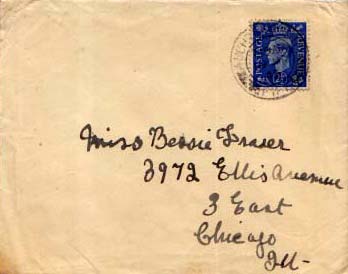 POSTAGE REVENUE
Miss Bessie Fraser
3972 Ellis Avenue
3 East
Chicago
Ill-